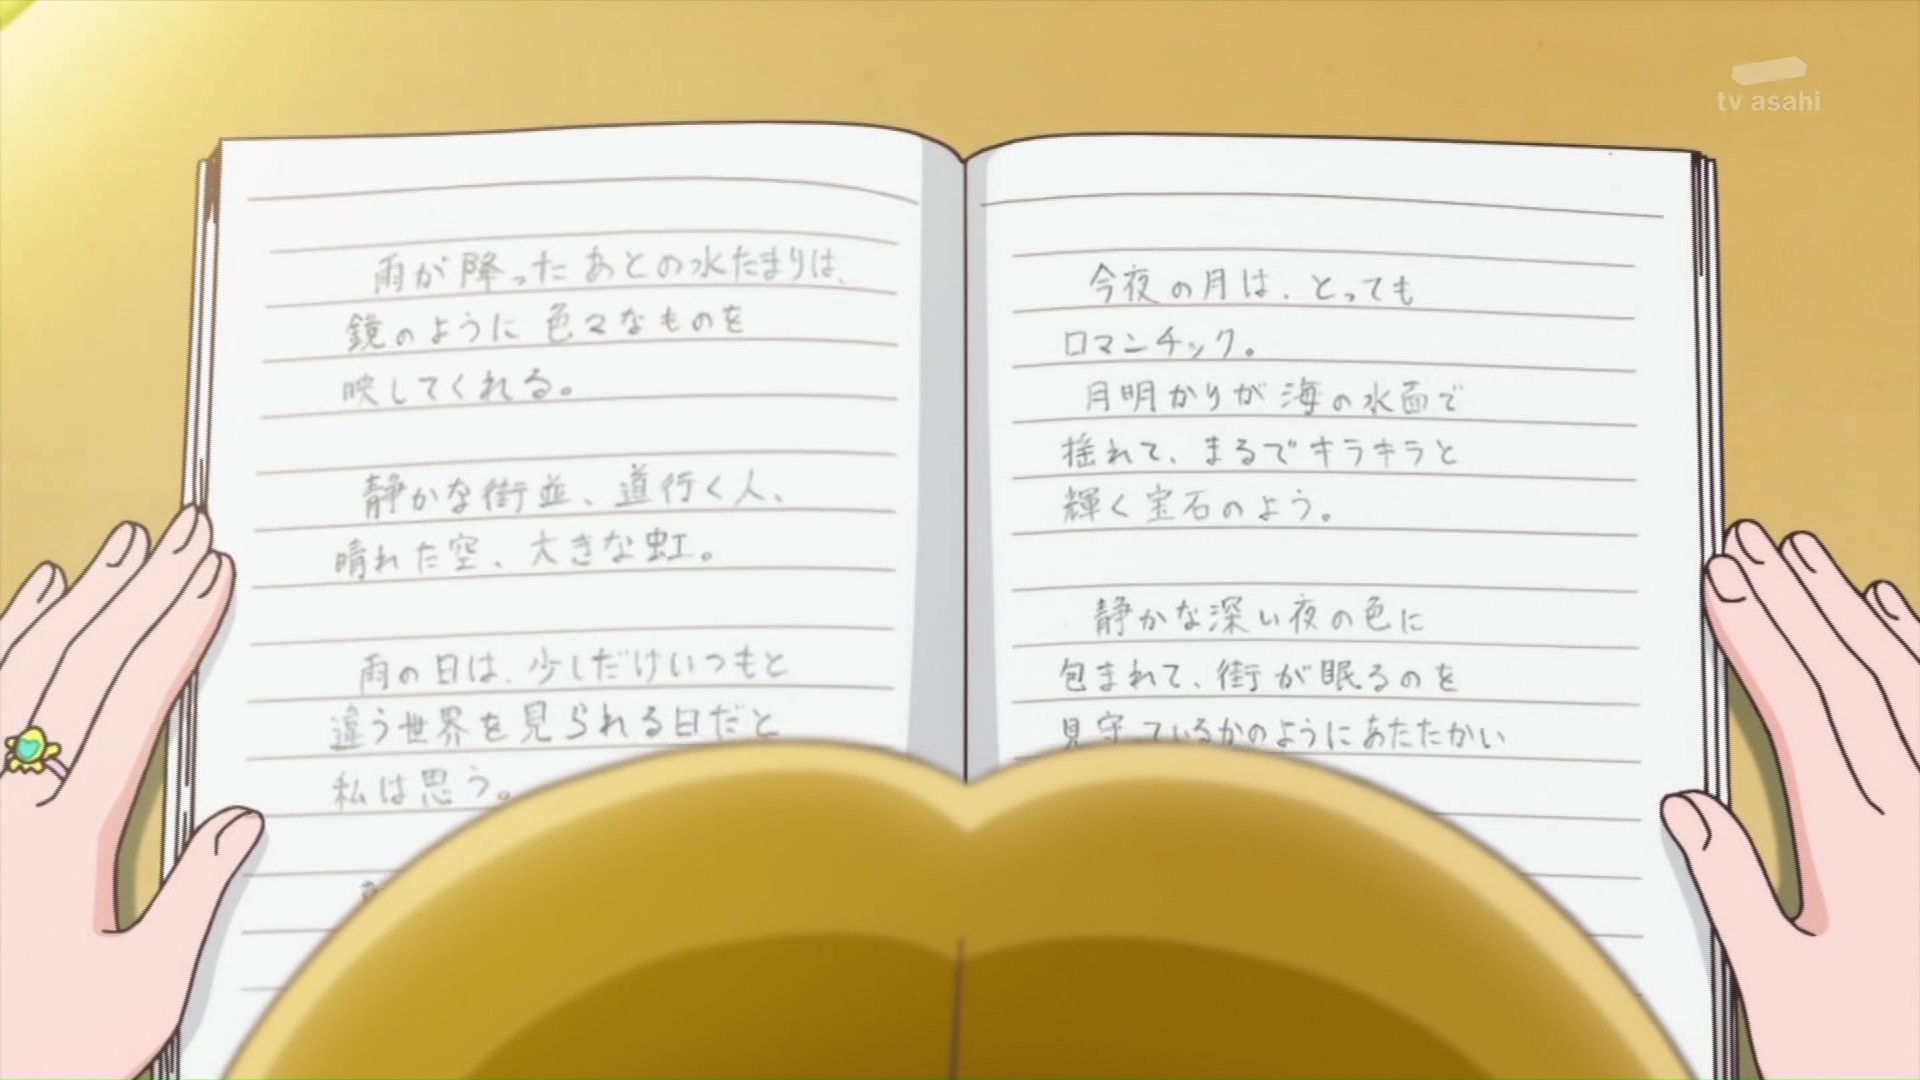 tv asahi
雨が降ったあとの水たまりは、
鏡のように色々なものを
映してくれる。
静かな街並、道行く人、
晴れた空、大きな虹。
雨の日は、少しだけいつもと
違う世界を見られる日だと
私は思う。
今夜の月は、とっても
ロマンチック。
月明かりが海の水面で
揺れて、まるでキラキラと
輝く宝石のよう。
静かな深い夜の色に
包まれて、街が眠るのを
見守ているかのようにあたたかい